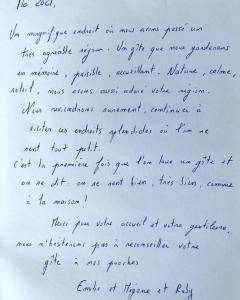 Mai 2021,
Un magnifique endroit où nous avons passé un
très agréable séjour. Un gîte que nous garderons
en mémoire, paisible, accueillant. Nature, calme,
soleil, nous avons aussi adoré votre région.
Nous reviendrons surement, continuer à
visiter ces endroits splendides où l'on se
sent tout petit.
C'est la première fois que l'on loue un gîte et
on se dit : on se sent bien, très bien, comme
à la maison !
Merci pour votre accueil et votre gentillesse,
nous n'hésiterons pas à reconseiller votre
gîte à nos proches
Emilie et Mégane et Ruby